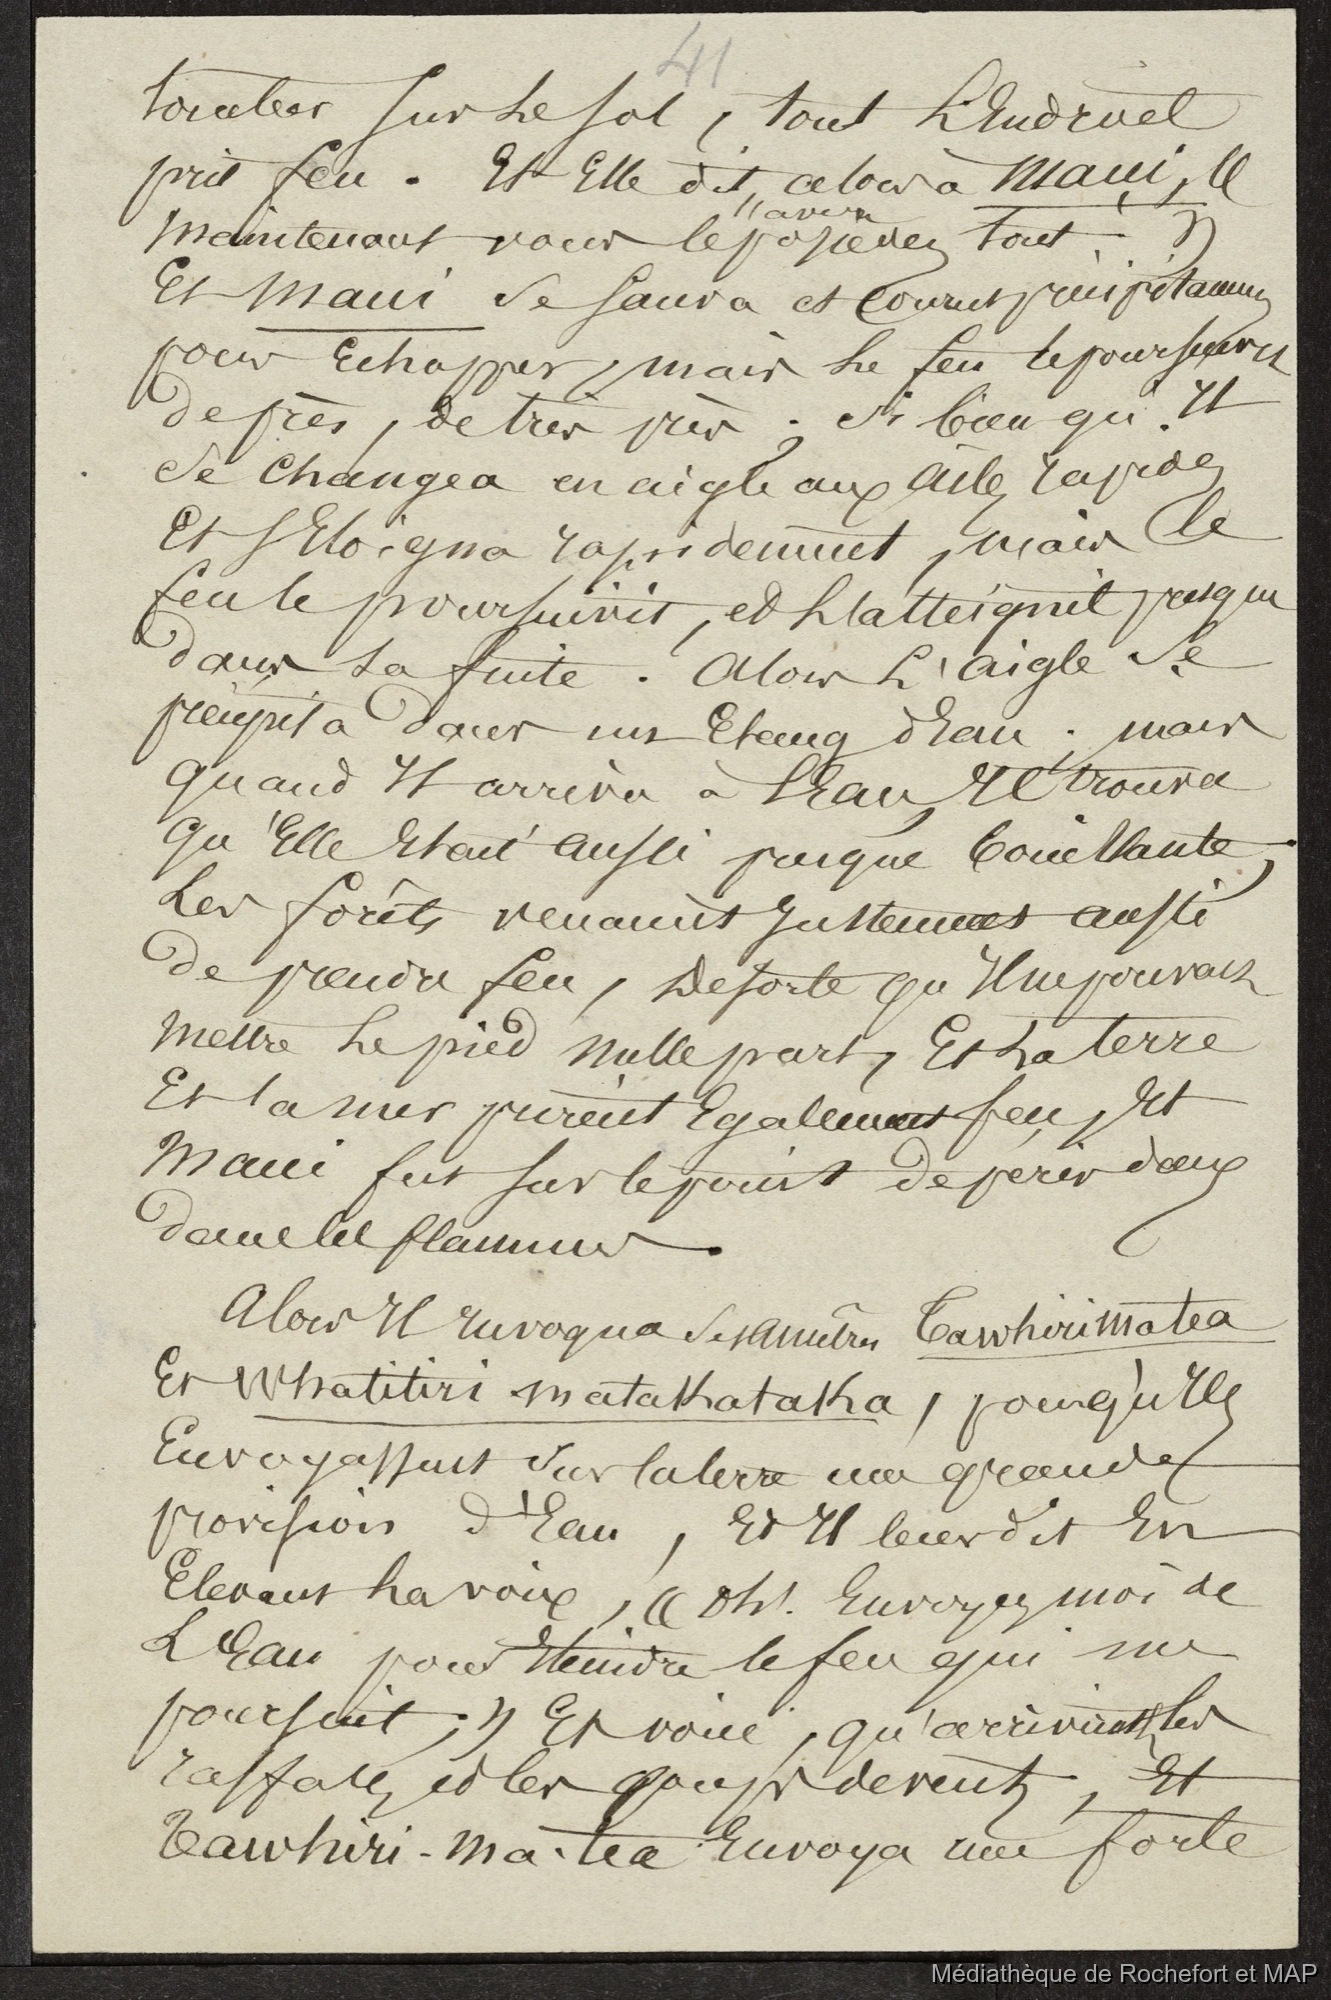 41
tomber sur le sol, tout l'Endroit
prit feu. Et Elle dit, alors à Maui, «
avez
Maintenant vous le possèdez tout. »
Et Maui se sauva et Courut précipitamment
pour Echapper, mais le feu le poursuivit
de près, de très près ; si bien qu'Il
se changea en aigle aux ailes rapides
Et s'Eloigna rapidement, mais le
feu le poursuivit, et l'atteignit presque
dans sa fuite. Alors l'aigle se
précipita dans un Etang d'Eau ; mais
quand Il arriva à l'Eau, Il trouva
qu'Elle Etait aussi presque bouillante,
Les forêts venaient justement aussi
de prendre feu, de sorte qu'Il ne pouvait
mettre le pied nulle part, Et la terre
Et la mer prirent Egalement feu, Et
Maui fut sur le point de périr dans
dans les flammes.
Alors Il invoqua ses Ancêtres Tawhirimatea
Et Whatitiri matakataka, pour qu'Ils
Envoyassent sur la terre une grande
provision d'Eau, Et Il leur dit En
Elevant la voix, « Oh! Envoyez moi de
L'Eau pour Eteindre le feu qui me
poursuit ; » Et voici, qu'arrivèrent les
raffales et les coups de vents, Et
Tawhiri-ma-tea Envoya une forte
Médiathèque de Rochefort et MAP